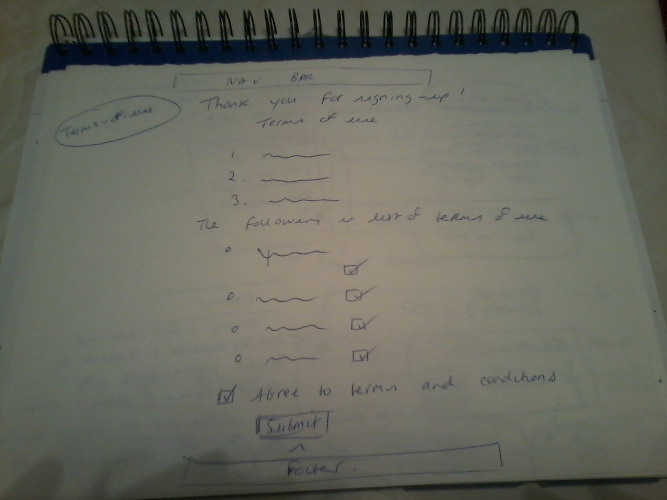 NAV BAR
Terms-of-use
Thank you for signing-up!
Terms of use
1.
2.
3.
The following is list of terms of use
Agree to terms and conditions
Submit
Footer.